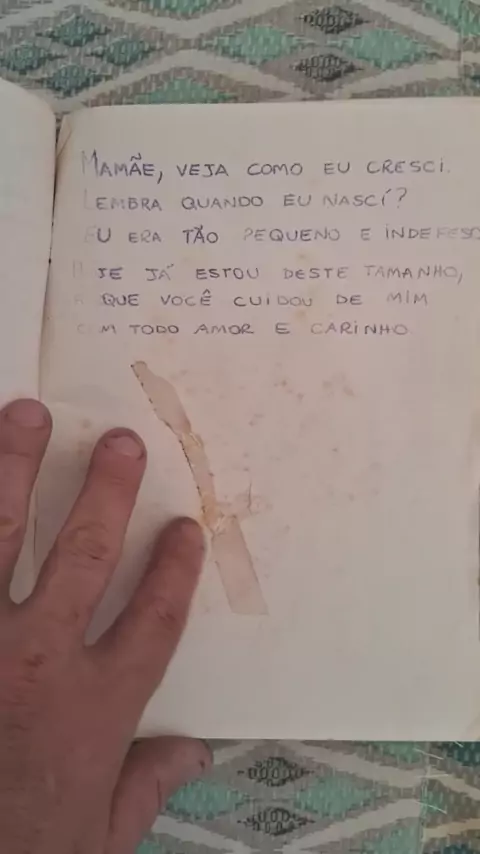 MAMÃE, VEJA COMO EU CRESCI.
LEMBRA QUANDO EU NASCÍ?
EU ERA TÃO PEQUENO E INDEFESO
HOJE JÁ ESTOU DESTE TAMANHO,
QUE VOCÊ CUIDOU DE MIM
COM TODO AMOR E CARINHO